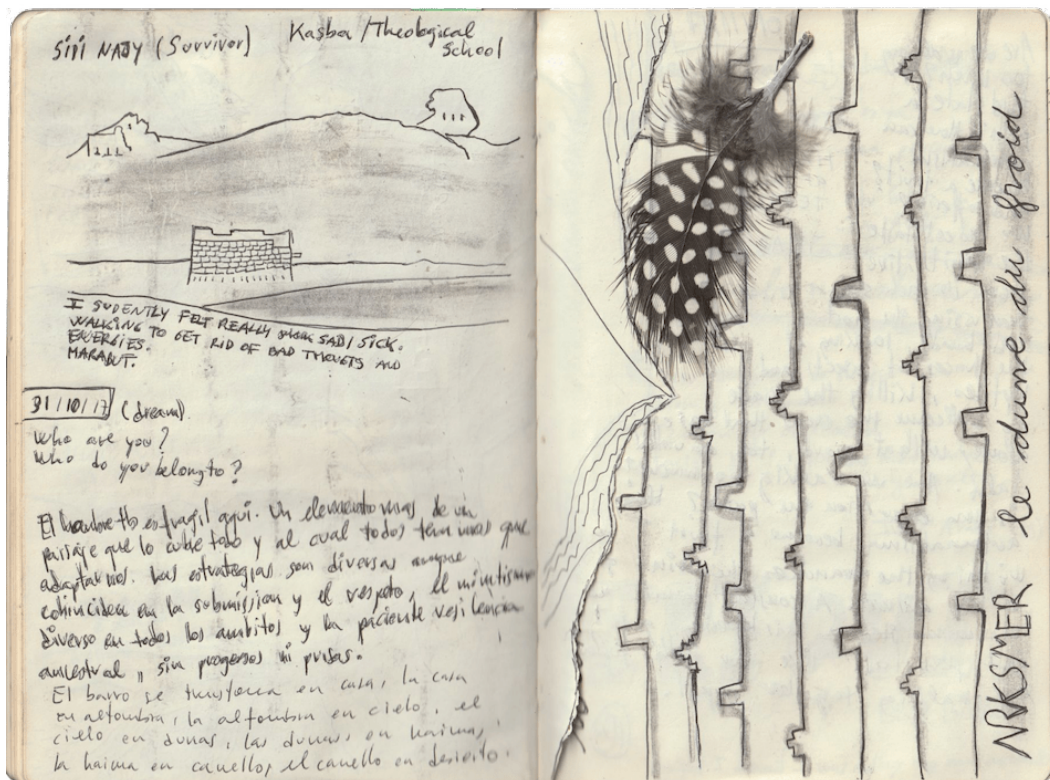 Siri NAJY (Survivor)
Kasba / Theological
School
I SUDENTLY FELT REALLY SAD/SICK.
WALKING TO GET RID OF BAD THOUGTS AND
ENERGIES.
MARABUT.
31/10/17 (dream)
Who are you?
Who do you belong to?
El hombre tb es fragil aqui. Un elemento mas de un
paisaje que lo cubre todo y al cual todos tenemos que
adaptarnos. Las estrategias son diversas aunque
coinciden en la submission y el respeto, el mimetismo
diverso en todos los ambitos y la paciente resiliencia
ancestral, sin progresos ni prisas.
El barro se transforma en casa, la casa
en alfombra, la alfombra en cielo, el
cielo en dunas, las dunas en haima,
la haima en camello, el camello en desierto.
NRKSMER le du froid